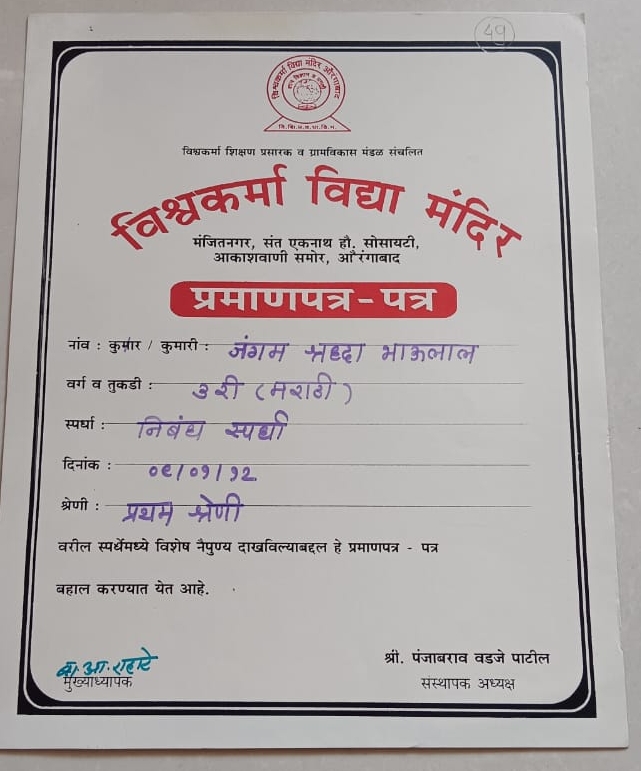 49
विश्वकर्मा विद्या मंदिर औरंगाबाद
वि.शि.प्र.व.ग्रा.वि.मं.
विश्वकर्मा शिक्षण प्रसारक व ग्रामविकास मंडळ संचलित
विश्वकर्मा विद्या मंदिर
मंजितनगर, संत एकनाथ हौ. सोसायटी,
आकाशवाणी समोर, औरंगाबाद
प्रमाणपत्र - पत्र
नांव : कुमार / कुमारी : जंगम श्रध्दा भाऊलाल
वर्ग व तुकडी : ३री (मराठी)
स्पर्धा : निबंध स्पर्धा
दिनांक : ०९/०१/१२
श्रेणी : प्रथम श्रेणी
वरील स्पर्धेमध्ये विशेष नैपुण्य दाखविल्याबद्दल हे प्रमाणपत्र - पत्र
बहाल करण्यात येत आहे.
श्री. पंजाबराव वडजे पाटील
मुख्याध्यापक
संस्थापक अध्यक्ष